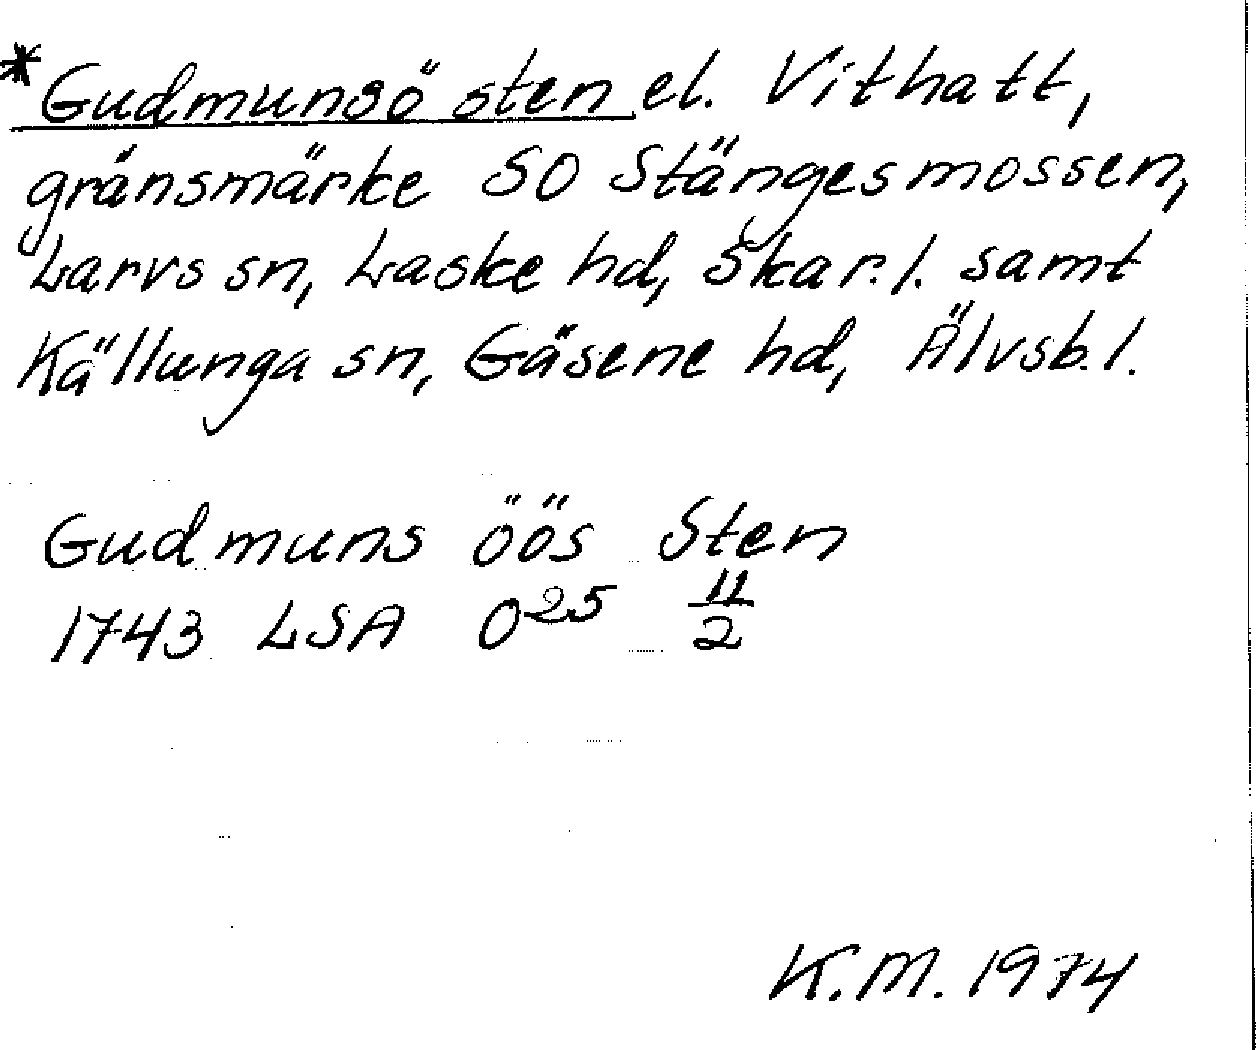 *Gudmunsö sten el. Vithatt,
gränsmärke SO Stängesmossen,
Larvs sn, Laske hd, Skar.l. samt
Källunga sn, Gäsene hd, Älvsb.l.
Gudmuns öös Sten
1743 LSA O25 11/2
K.M. 1974